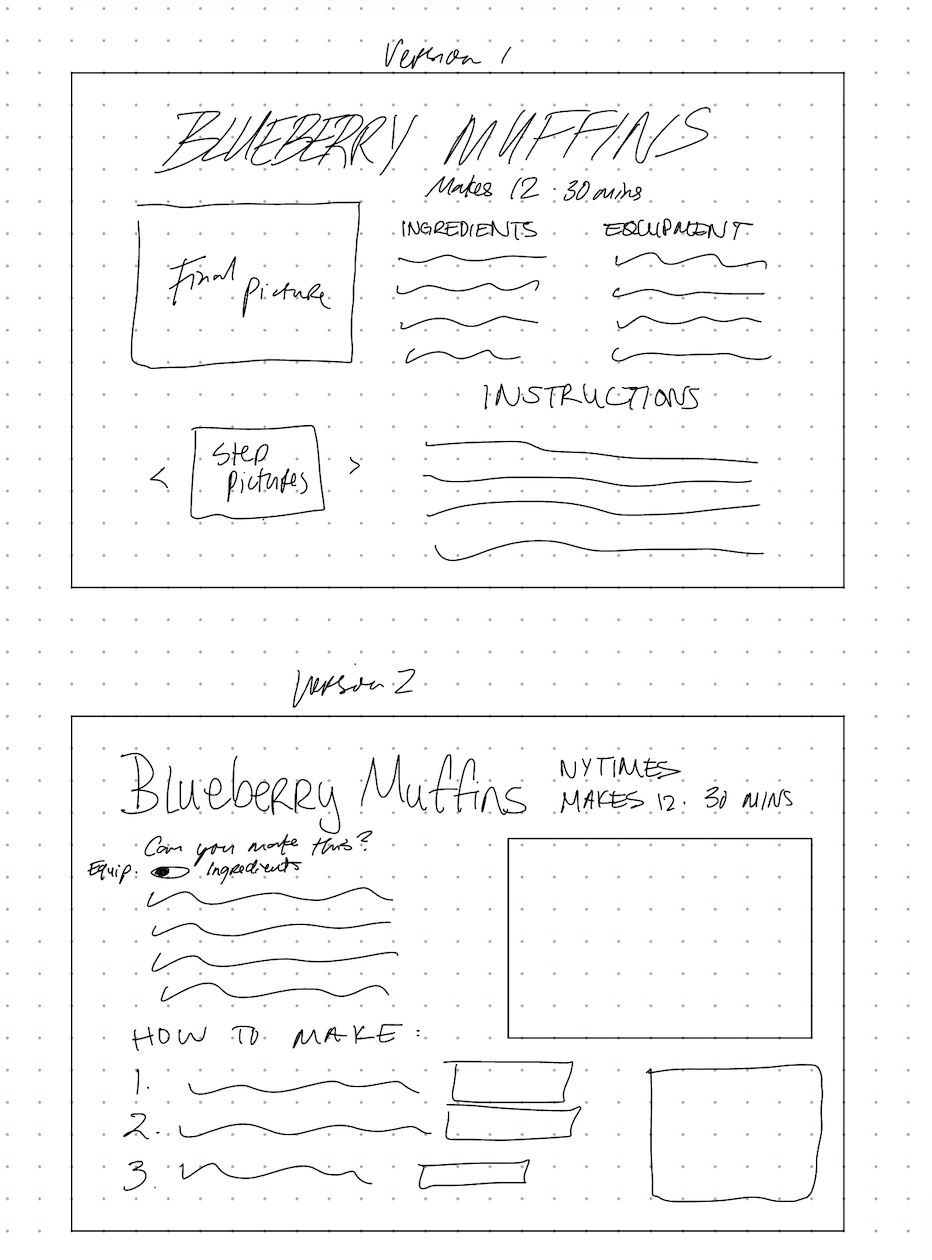 Version 1
BLUEBERRY MUFFINS
Makes 12 · 30 mins
INGREDIENTS
EQUIPMENT
Final Picture
INSTRUCTIONS
<
Step
Pictures
>
Version 2
Blueberry Muffins
NYTIMES
MAKES 12 · 30 MINS
Can you make this?
Equip. Ingredients
HOW TO MAKE:
1.
2.
3.